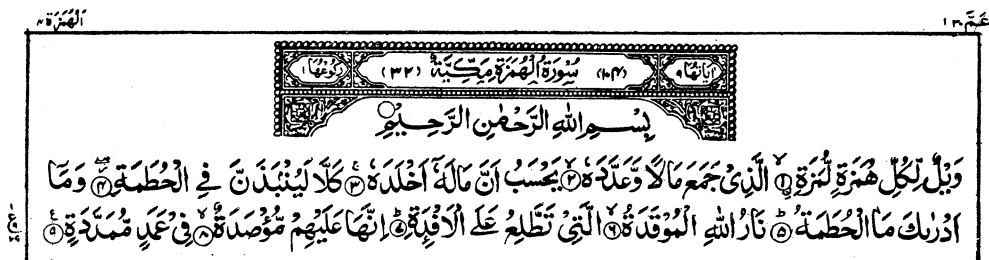 عَمَّ ٣٠ الْهُمَزَة ١٠٤
اٰيَاتُهَا ٩ (١٠٤) سُوْرَةُ الْهُمَزَةِ مَكِّيَّةٌ (٣٢) رُكُوْعُهَا ١
بِسْمِ اللهِ الرَّحْمٰنِ الرَّحِيْمِ
وَيْلٌ لِّكُلِّ هُمَزَةٍ لُّمَزَةِ ۙ‏﴿١﴾ الَّذِىْ جَمَعَ مَالًا وَّعَدَّدَهٗ ۙ‏﴿٢﴾ يَحْسَبُ اَنَّ مَالَهٗۤ اَخْلَدَهٗ ۚ‏﴿٣﴾ كَلَّا لَيُنْۢبَذَنَّ فِى الْحُطَمَةِ ۖ‏﴿٤﴾ وَمَاۤ
اَدْرٰىكَ مَا الْحُطَمَةُ ؕ‏﴿٥﴾ نَارُ اللهِ الْمُوْقَدَةُ ۙ‏﴿٦﴾ الَّتِىْ تَطَّلِعُ عَلَى الْاَفْـِٕدَةِ ؕ‏﴿٧﴾ اِنَّهَا عَلَيْهِمْ مُّؤْصَدَةٌ ۙ‏﴿٨﴾ فِىْ عَمَدٍ مُّمَدَّدَةٍ ۠‏﴿٩﴾